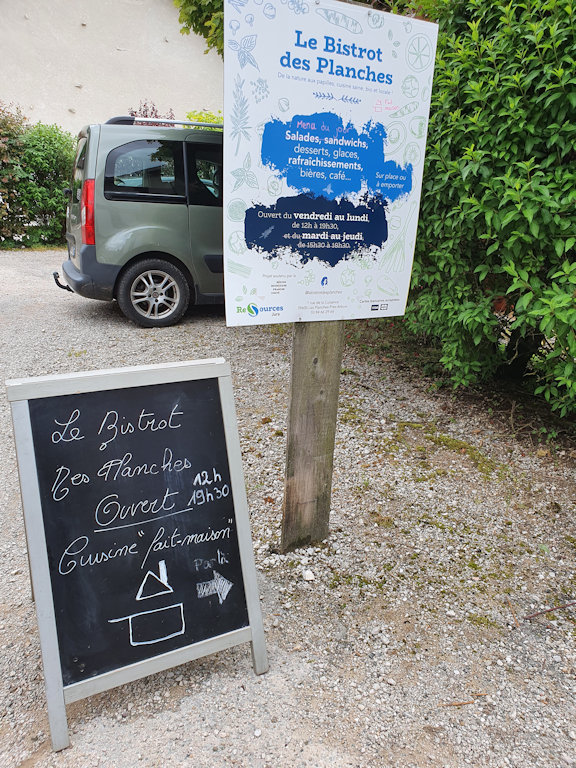 Le Bistrot
des Planches
De la nature aux papilles, cuisine saine, bio et locale !
Menu du jour
Salades, sandwichs,
desserts, glaces,
rafraîchissements,
bières, café...
Sur place ou
à emporter
Ouvert du vendredi au lundi,
de 12h à 19h30,
et du mardi au jeudi,
de 15h30 à 19h30.
Projet soutenu par
ReSources
Jura
Le Bistrot
Des Planches
Ouvert 12h
19h30
Cuisine "fait-maison"
Par là